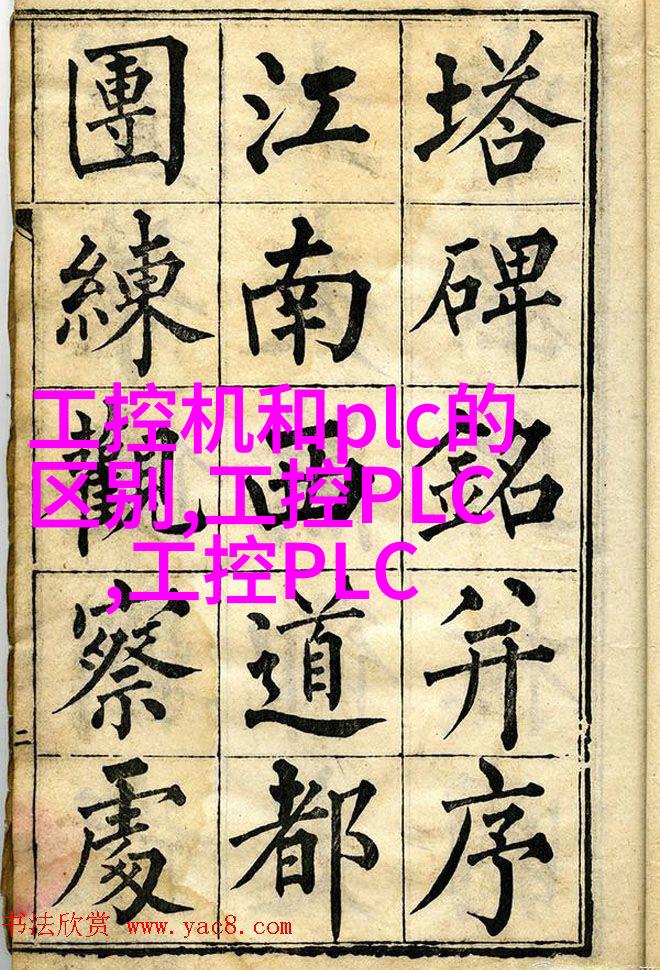 塔碑銘并序
江南西道都
團練觀察處
二
工控机和plc的
区别,工控PLC
,工控PLC
书法欣赏 www.yac8.com